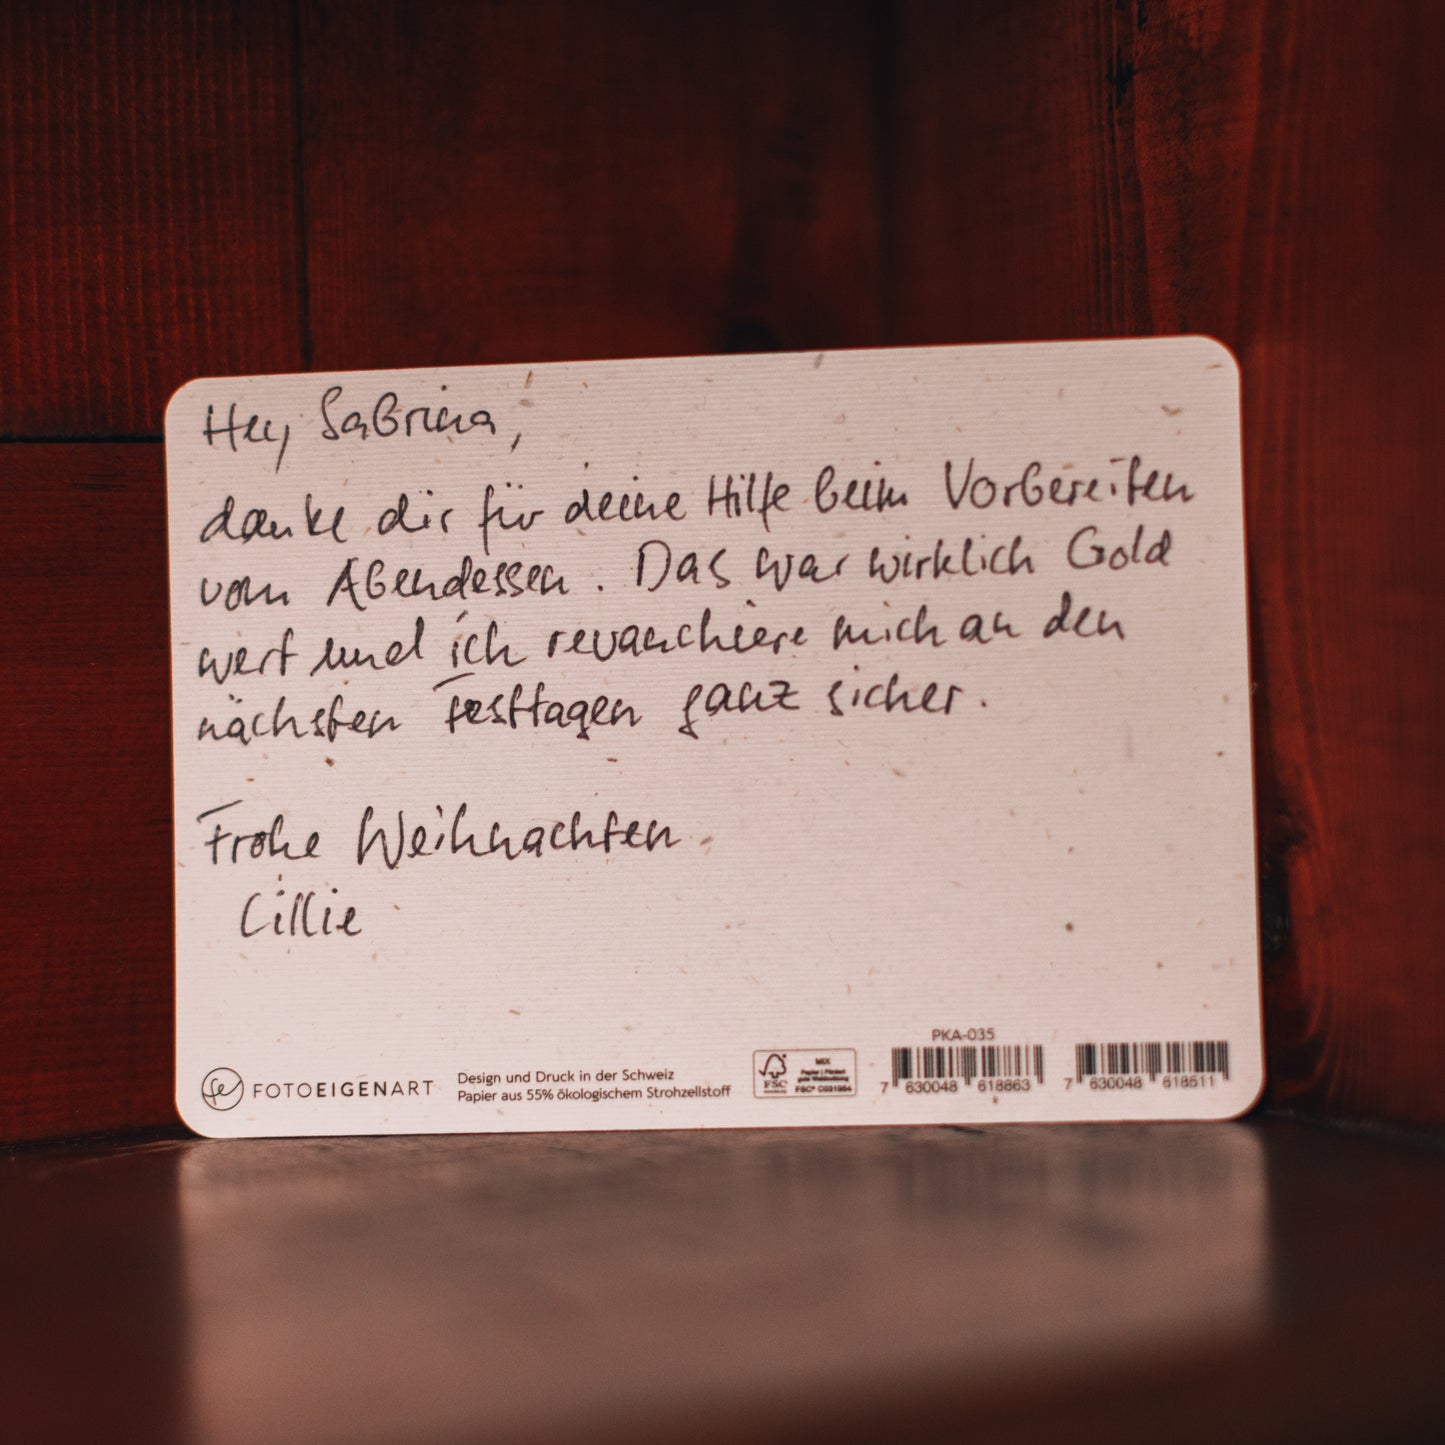 Hey Sabrina,
danke dir für deine Hilfe beim Vorbereiten
vom Abendessen. Das war wirklich Gold
wert und ich revanchiere mich an den
nächsten Festtagen ganz sicher.
Frohe Weihnachten
Cillie
fe FOTOEIGENART
Design und Druck in der Schweiz
Papier aus 55% ökologischem Strohzellstoff
FSC
MIX
Papier | Fördert
gute Waldnutzung
FSC® C031954
PKA-035
7 630048 618863
7 630048 618511